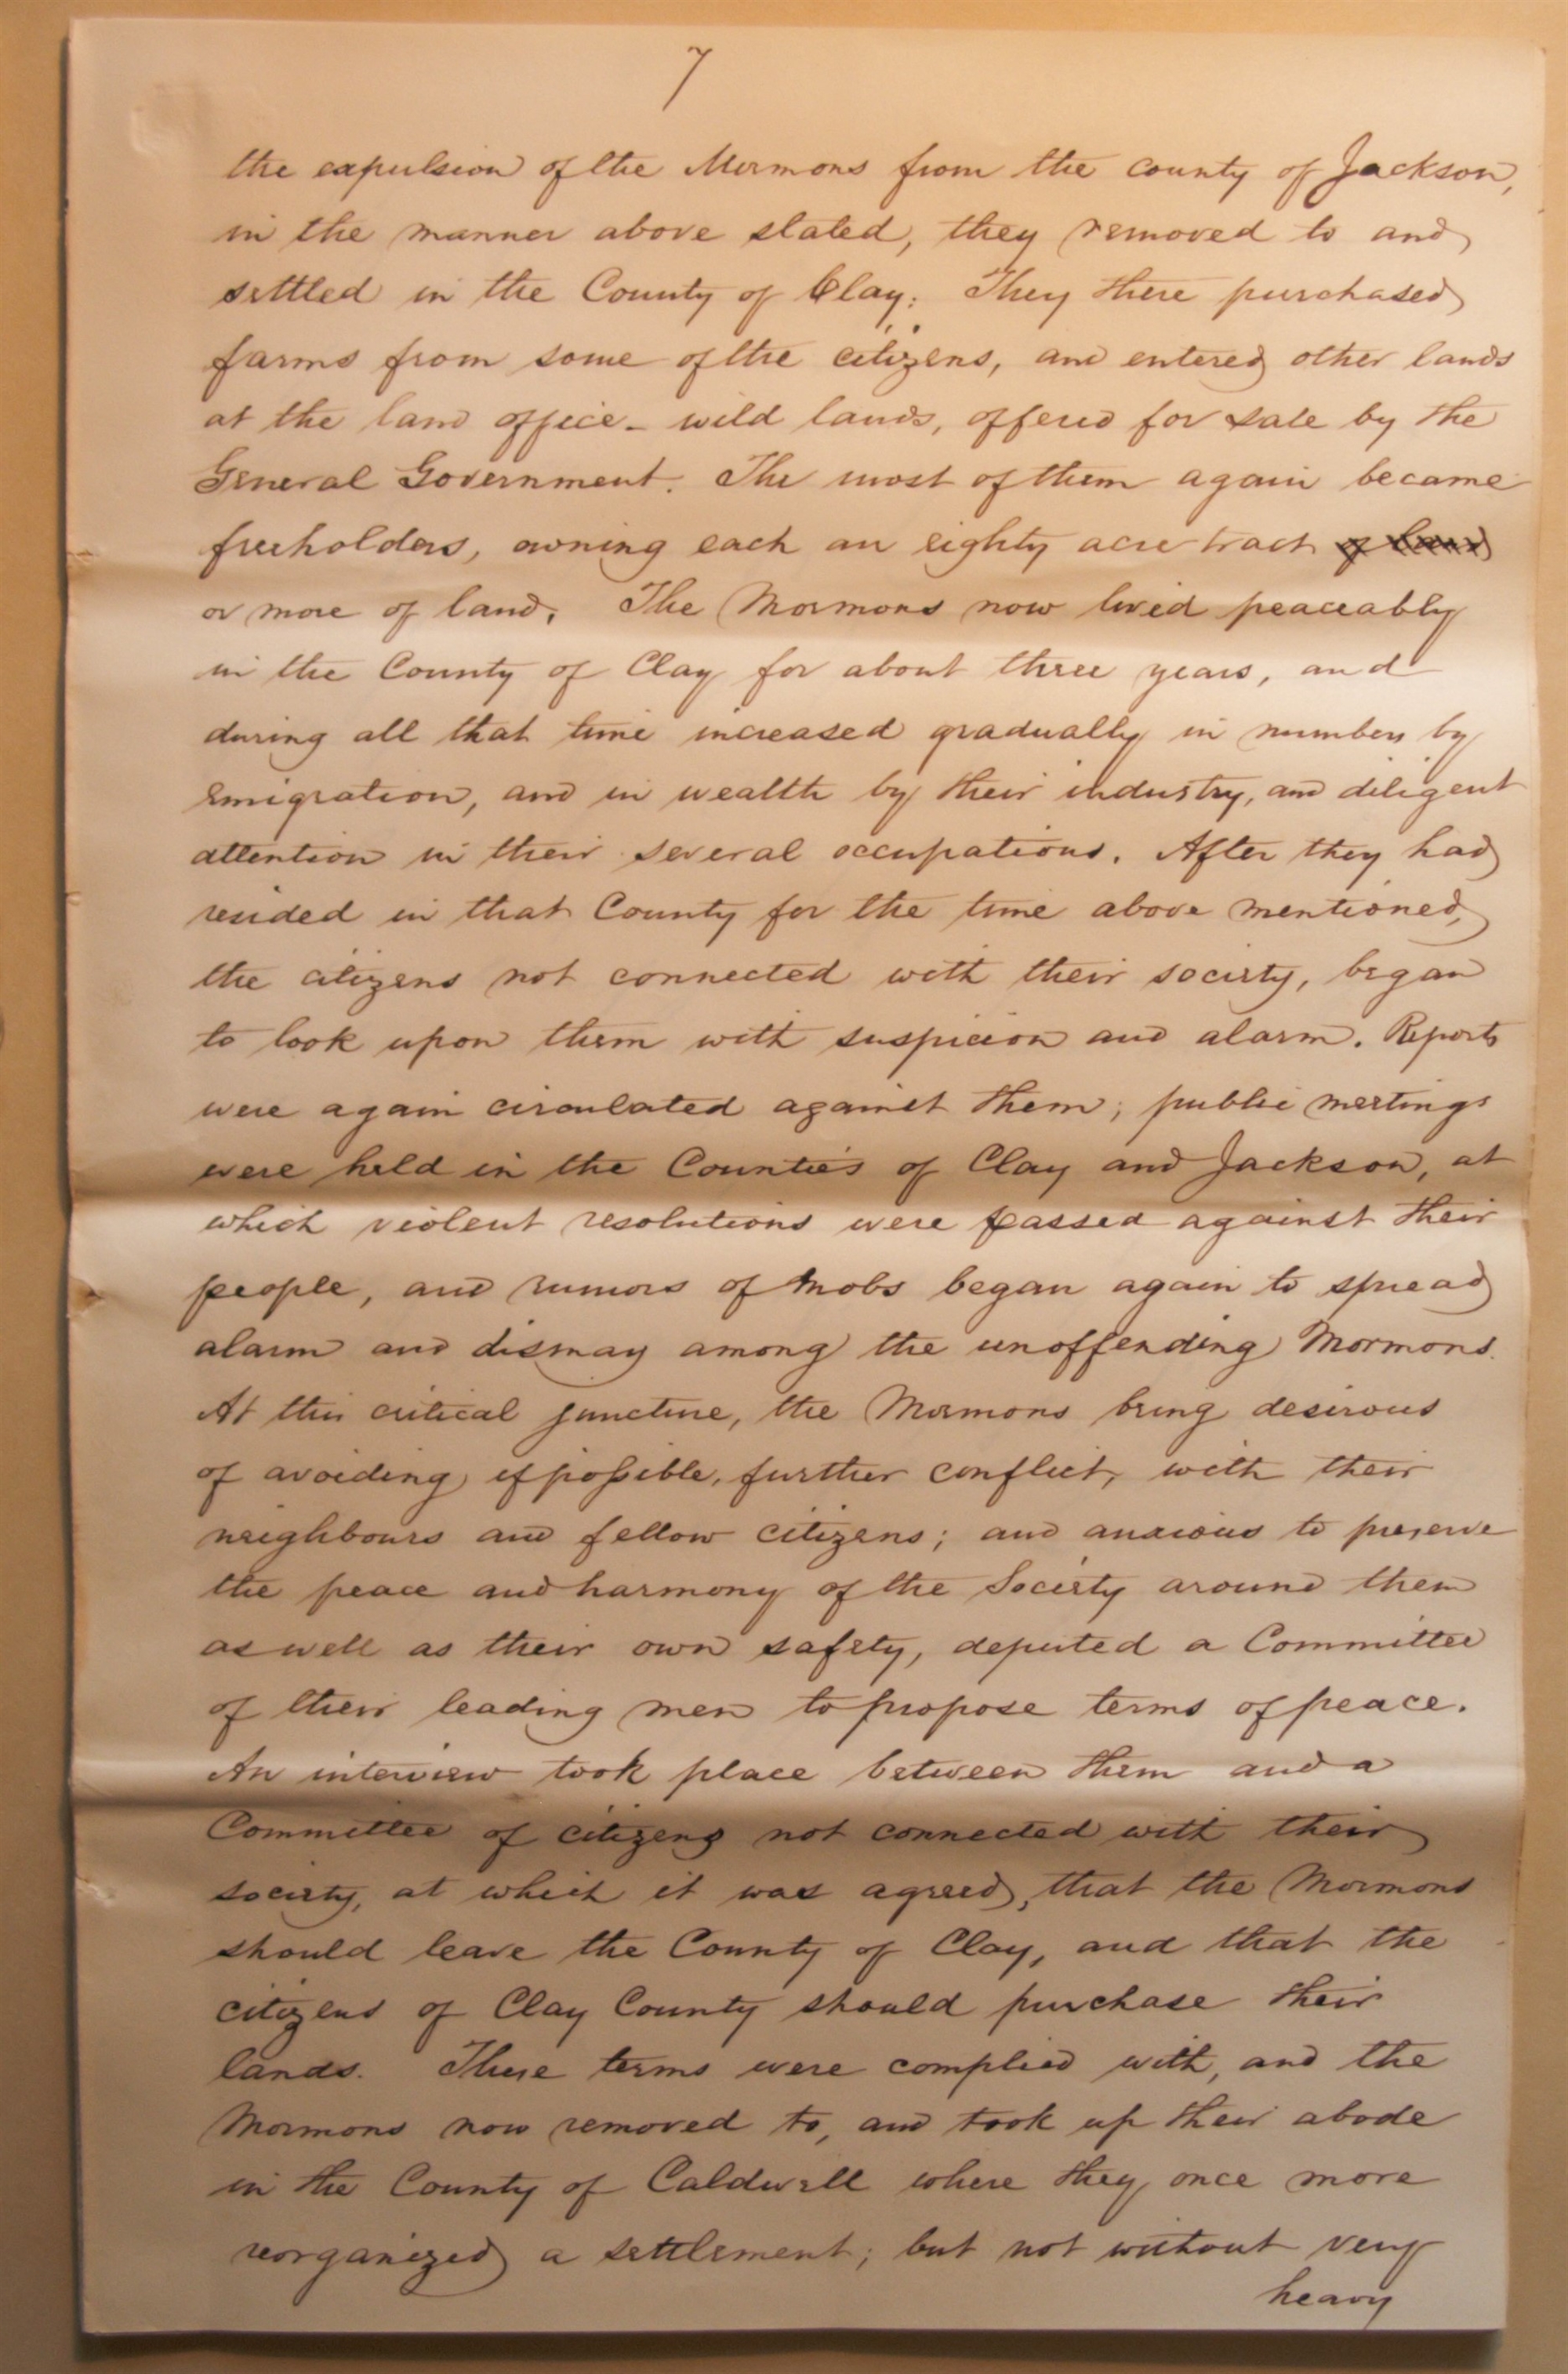 7
the expulsion of the Mormons from the county of Jackson,
in the manner above stated, they removed to and
settled in the County of Clay. They there purchased
farms from some of the citizens, and entered other lands
at the land office - wild lands, offered for sale by the
General Government. The most of them again became
freeholders, owning each an eighty acre tract of land
or more of land. The Mormons now lived peaceably
in the County of Clay for about three years, and
during all that time increased gradually in numbers by
emigration, and in wealth by their industry, and diligent
attention in their several occupations. After they had
resided in that County for the time above mentioned,
the citizens not connected with their society, began
to look upon them with suspicion and alarm. Reports
were again circulated against them; public meetings
were held in the Counties of Clay and Jackson, at
which violent resolutions were passed against their
people, and rumors of mobs began again to spread
alarm and dismay among the unoffending Mormons.
At this critical juncture, the Mormons being desirous
of avoiding if possible, further conflict, with their
neighbours and fellow citizens; and anxious to preserve
the peace and harmony of the Society around them
as well as their own safety, deputed a Committee
of their leading men to propose terms of peace.
An interview took place between them and a
Committee of citizens not connected with their
society, at which it was agreed, that the Mormons
should leave the County of Clay, and that the
citizens of Clay County should purchase their
lands. These terms were complied with, and the
Mormons now removed to, and took up their abode
in the County of Caldwell where they once more
reorganized a settlement; but not without very
heavy